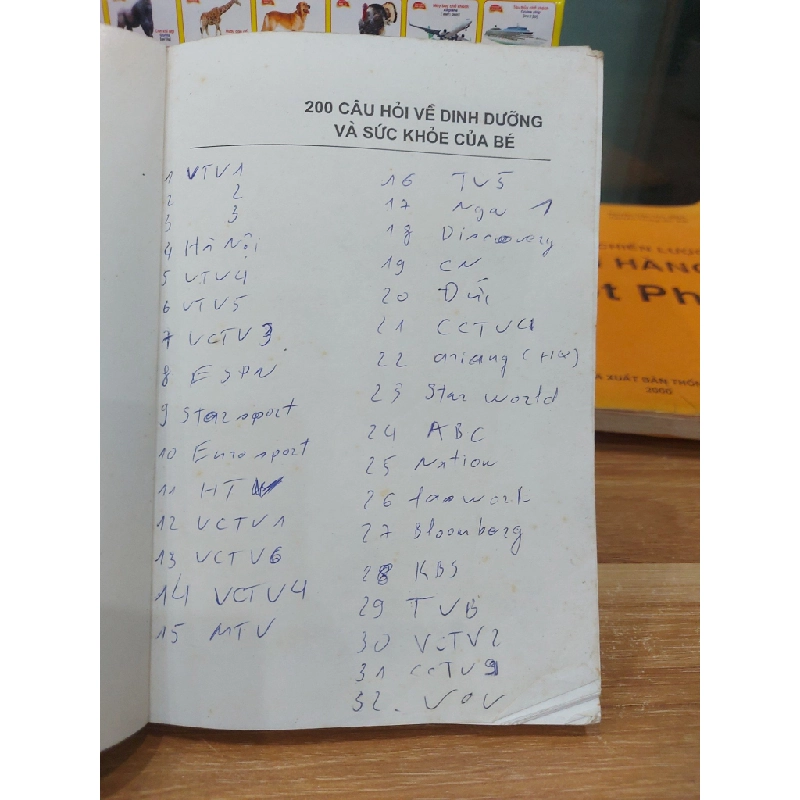 200 CÂU HỎI VỀ DINH DƯỠNG
VÀ SỨC KHỎE CỦA BÉ
1 VTV1
2 2
3 3
4 Hà Nội
5 VTV4
6 VTV5
7 VCTV3
8 ESPN
9 Star sport
10 Euro sport
11 HTV
12 VCTV1
13 VCTV6
14 VCTV4
15 MTV
16 TV5
17 Nga 1
18 Discovery
19 CN
20 Đức
21 CCTV4
22 ariang (HQ)
23 Star world
24 ABC
25 Nation
26
27 Bloomberg
28 KBS
29 TVB
30 VCTV2
31 CCTV9
32. VOV
CHIẾN LƯỢC
HÀNG
XUẤT BẢN THỐN
2006